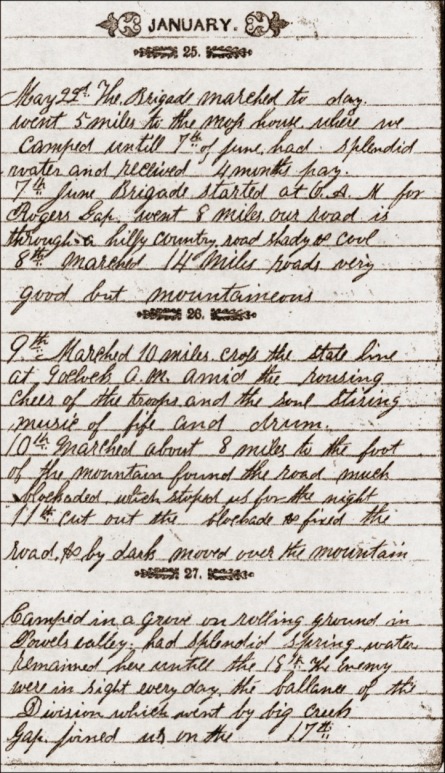 JANUARY.
25.
May 22d. The Brigade marched to day.
went 5 miles to the moss house where we
Camped untill 7th of June, had splendid
water and received 4 months pay.
7th June Brigade started at 6 A M for
Rogers Gap went 8 miles our road is
through a hilly country road shady & cool
8th marched 14 Miles roads very
good but mountaineous
26.
9th Marched 10 miles. cross the state line
at 9 oclock A.M. amid the rousing
cheer of the troops and the soul stiring
music of fife and drum.
10th Marched about 8 miles to the foot
of the mountain found the road much
blockaded which stoped us for the night
11th cut out the blockade & fixed the
road, & by dark moved over the mountain
27.
Camped in a grove on rolling ground in
Powels valley, had splendid spring water
remained here untill the 18th. The Enemy
were in sight every day, the ballance of the
Division which went by big Creek
Gap. joined us on the 17th